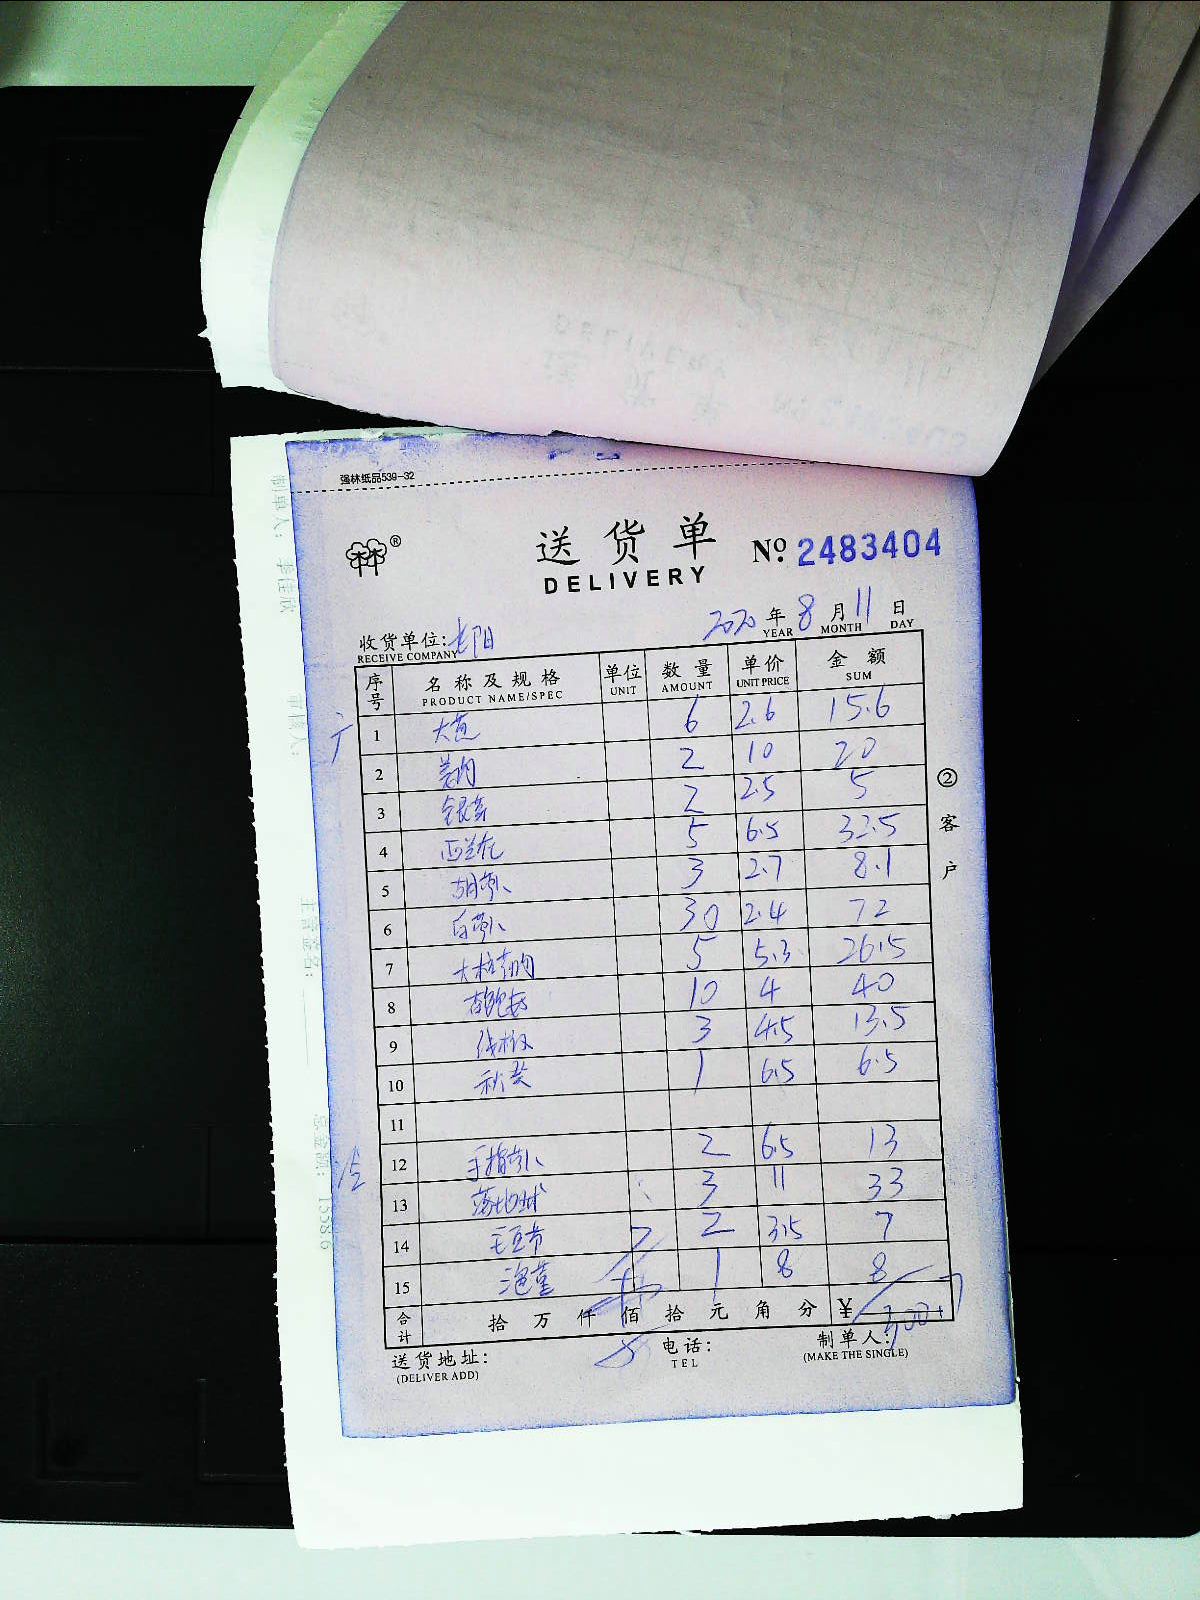 强林纸品539-32
送货单
DELIVERY
№ 2483404
2020 年 8 月 11 日
YEAR MONTH DAY
收货单位:
RECEIVE COMPANY
序号 名称及规格 单位 数量 单价 金额
PRODUCT NAME/SPEC UNIT AMOUNT UNIT PRICE SUM
1 大葱 6 2.6 15.6
2 姜肉 2 10 20
3 银芽 2 2.5 5
4 西兰花 5 6.5 32.5
5 胡萝卜 3 2.7 8.1
6 白萝卜 30 2.4 72
7 5 5.3 26.5
8 10 4 40
9 线椒 3 4.5 13.5
10 秋葵 1 6.5 6.5
11
12 手指萝卜 2 6.5 13
13 3 11 33
14 毛豆节 2 3.5 7
15 1 8 8
合计 拾 万 仟 佰 拾 元 角 分 ¥
送货地址:
(DELIVER ADD)
电话:
TEL
制单人:
(MAKE THE SINGLE)
②客户
制单人: 李佳欣
审核人:
主管签名:
总金额: 1558.6